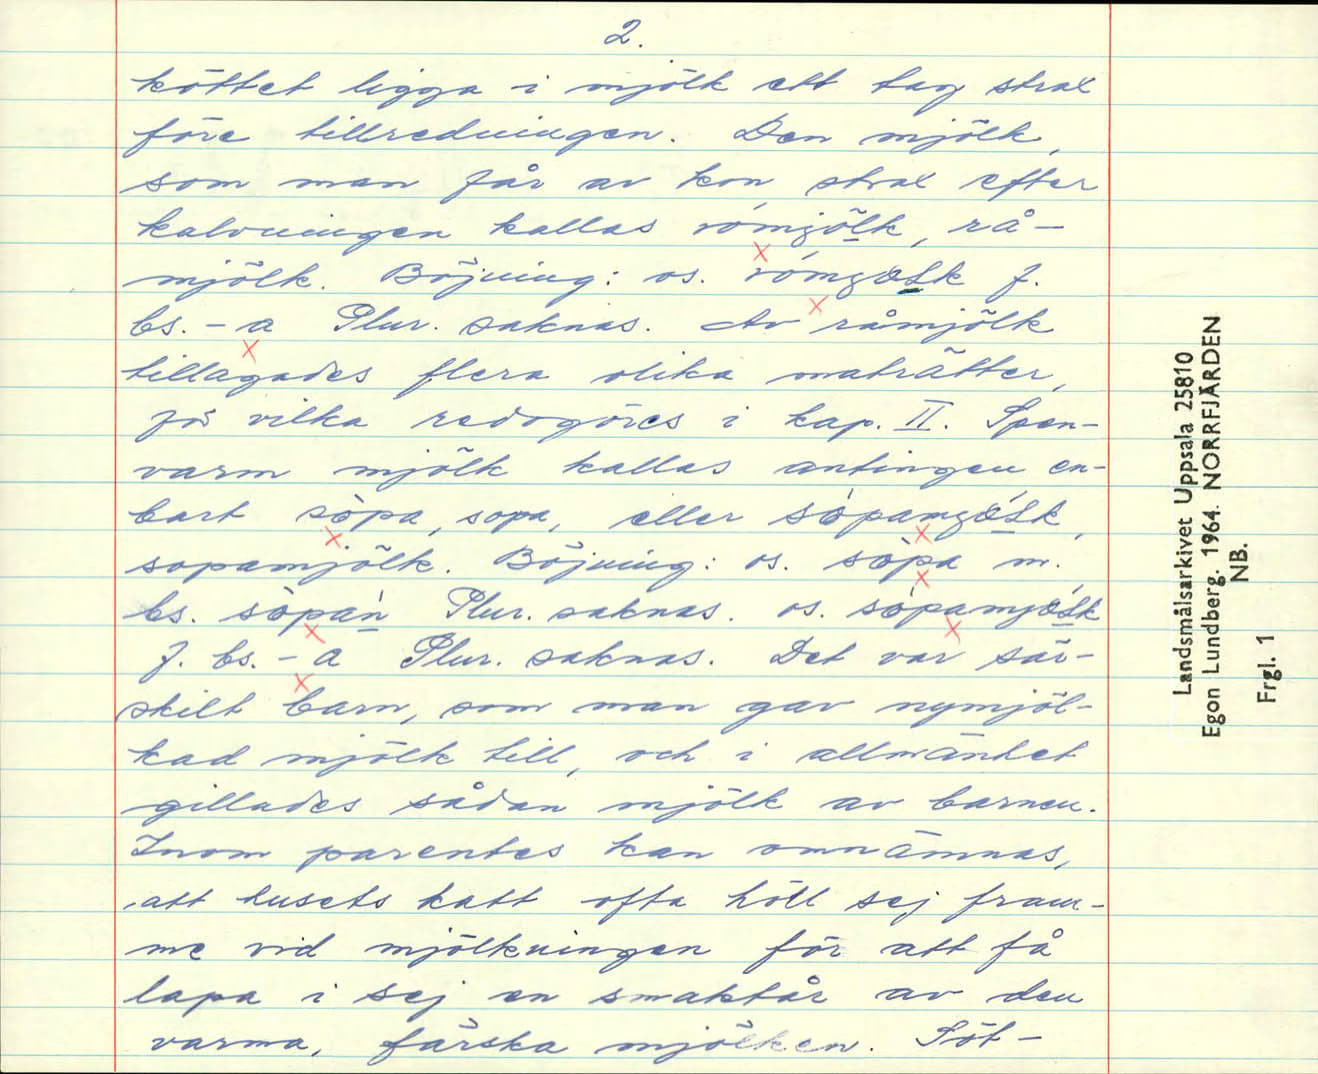 2.
köttet ligga i mjölk ett tag strax
före tillredningen. Den mjölk,
som man får av kon strax efter
kalvningen kallas rómjölk, rå-
mjölk. Böjning: os. rómjölk f.
bs. - a Plur. saknas. Av råmjölk
tillagades flera olika maträtter,
för vilka redogöres i kap. II. Spen-
varm mjölk kallas antingen en-
bart sòpa, sopa, eller sòpamjölk,
sopamjölk. Böjning: os. sòpa m.
bs. sòpan Plur. saknas. os. sòpamjölk
f. bs. - a Plur. saknas. Det var sär-
skilt barn, som man gav nymjöl-
kad mjölk till, och i allmänhet
gillades sådan mjölk av barnen.
Inom parentes kan omnämnas,
att husets katt ofta höll sej fram-
me vid mjölkningen för att få
lapa i sej en smaktår av den
varma, färska mjölken. Söt-
Landsmålsarkivet Uppsala 25810
Egon Lundberg. 1964. NORRFJÄRDEN
NB.
Frgl. 1